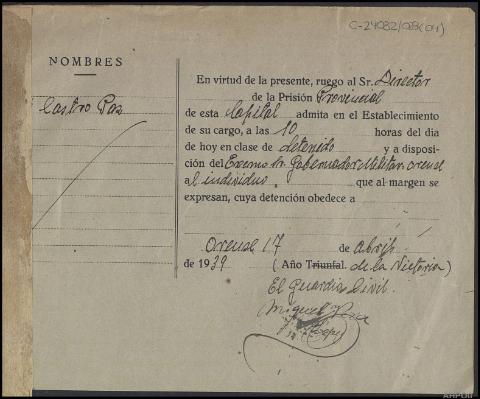 C-24082/028(04)
NOMBRES
Castro Paz
En virtud de la presente, ruego al Sr. Director
de la Prisión Provincial
de esta Capital admita en el Establecimiento
de su cargo, a las 10 horas del día
de hoy en clase de detenido y a disposi-
ción del Excmo Sr. Gobernador Militar. Orense
al individuo que al margen se
expresan, cuya detención obedece a
Orense 17 de Abril
de 1939 (Año Triunfal. de la Victoria)
El Guardia Civil.
Miguel
AHPOU